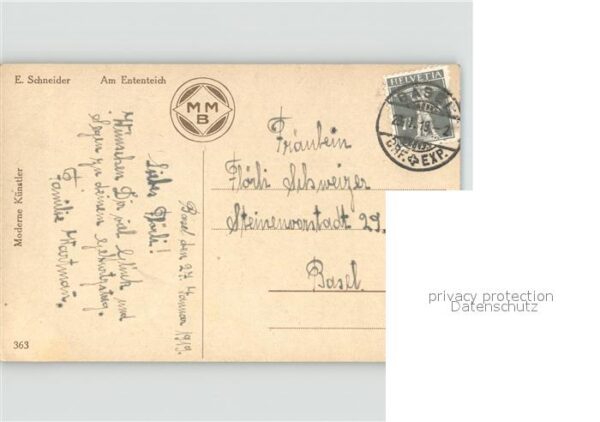 E. Schneider Am Ententeich
MMB
Moderne Künstler
363
Basel den 27. Januar 1919.
Liebes Flörli!
Wünschen Dir viel Glück und
Segen zu deinem Geburtstag.
Familie Hartmann.
HELVETIA
BRF. EXP.
Fräulein
Flörli Schweizer
Steinenvorstadt 29.
Basel.
privacy protection
Datenschutz